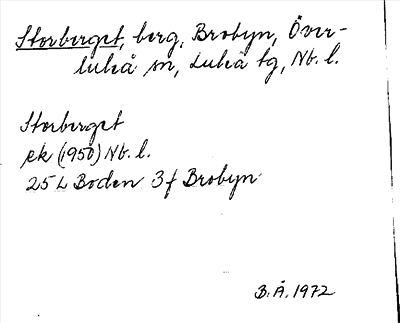 Storberget, berg, Brobyn, Över-
luleå sn, Luleå tg, Nb. l.
Storberget
ek (1950) Nb. l.
25 L Boden 3f Brobyn
B. Å. 1972